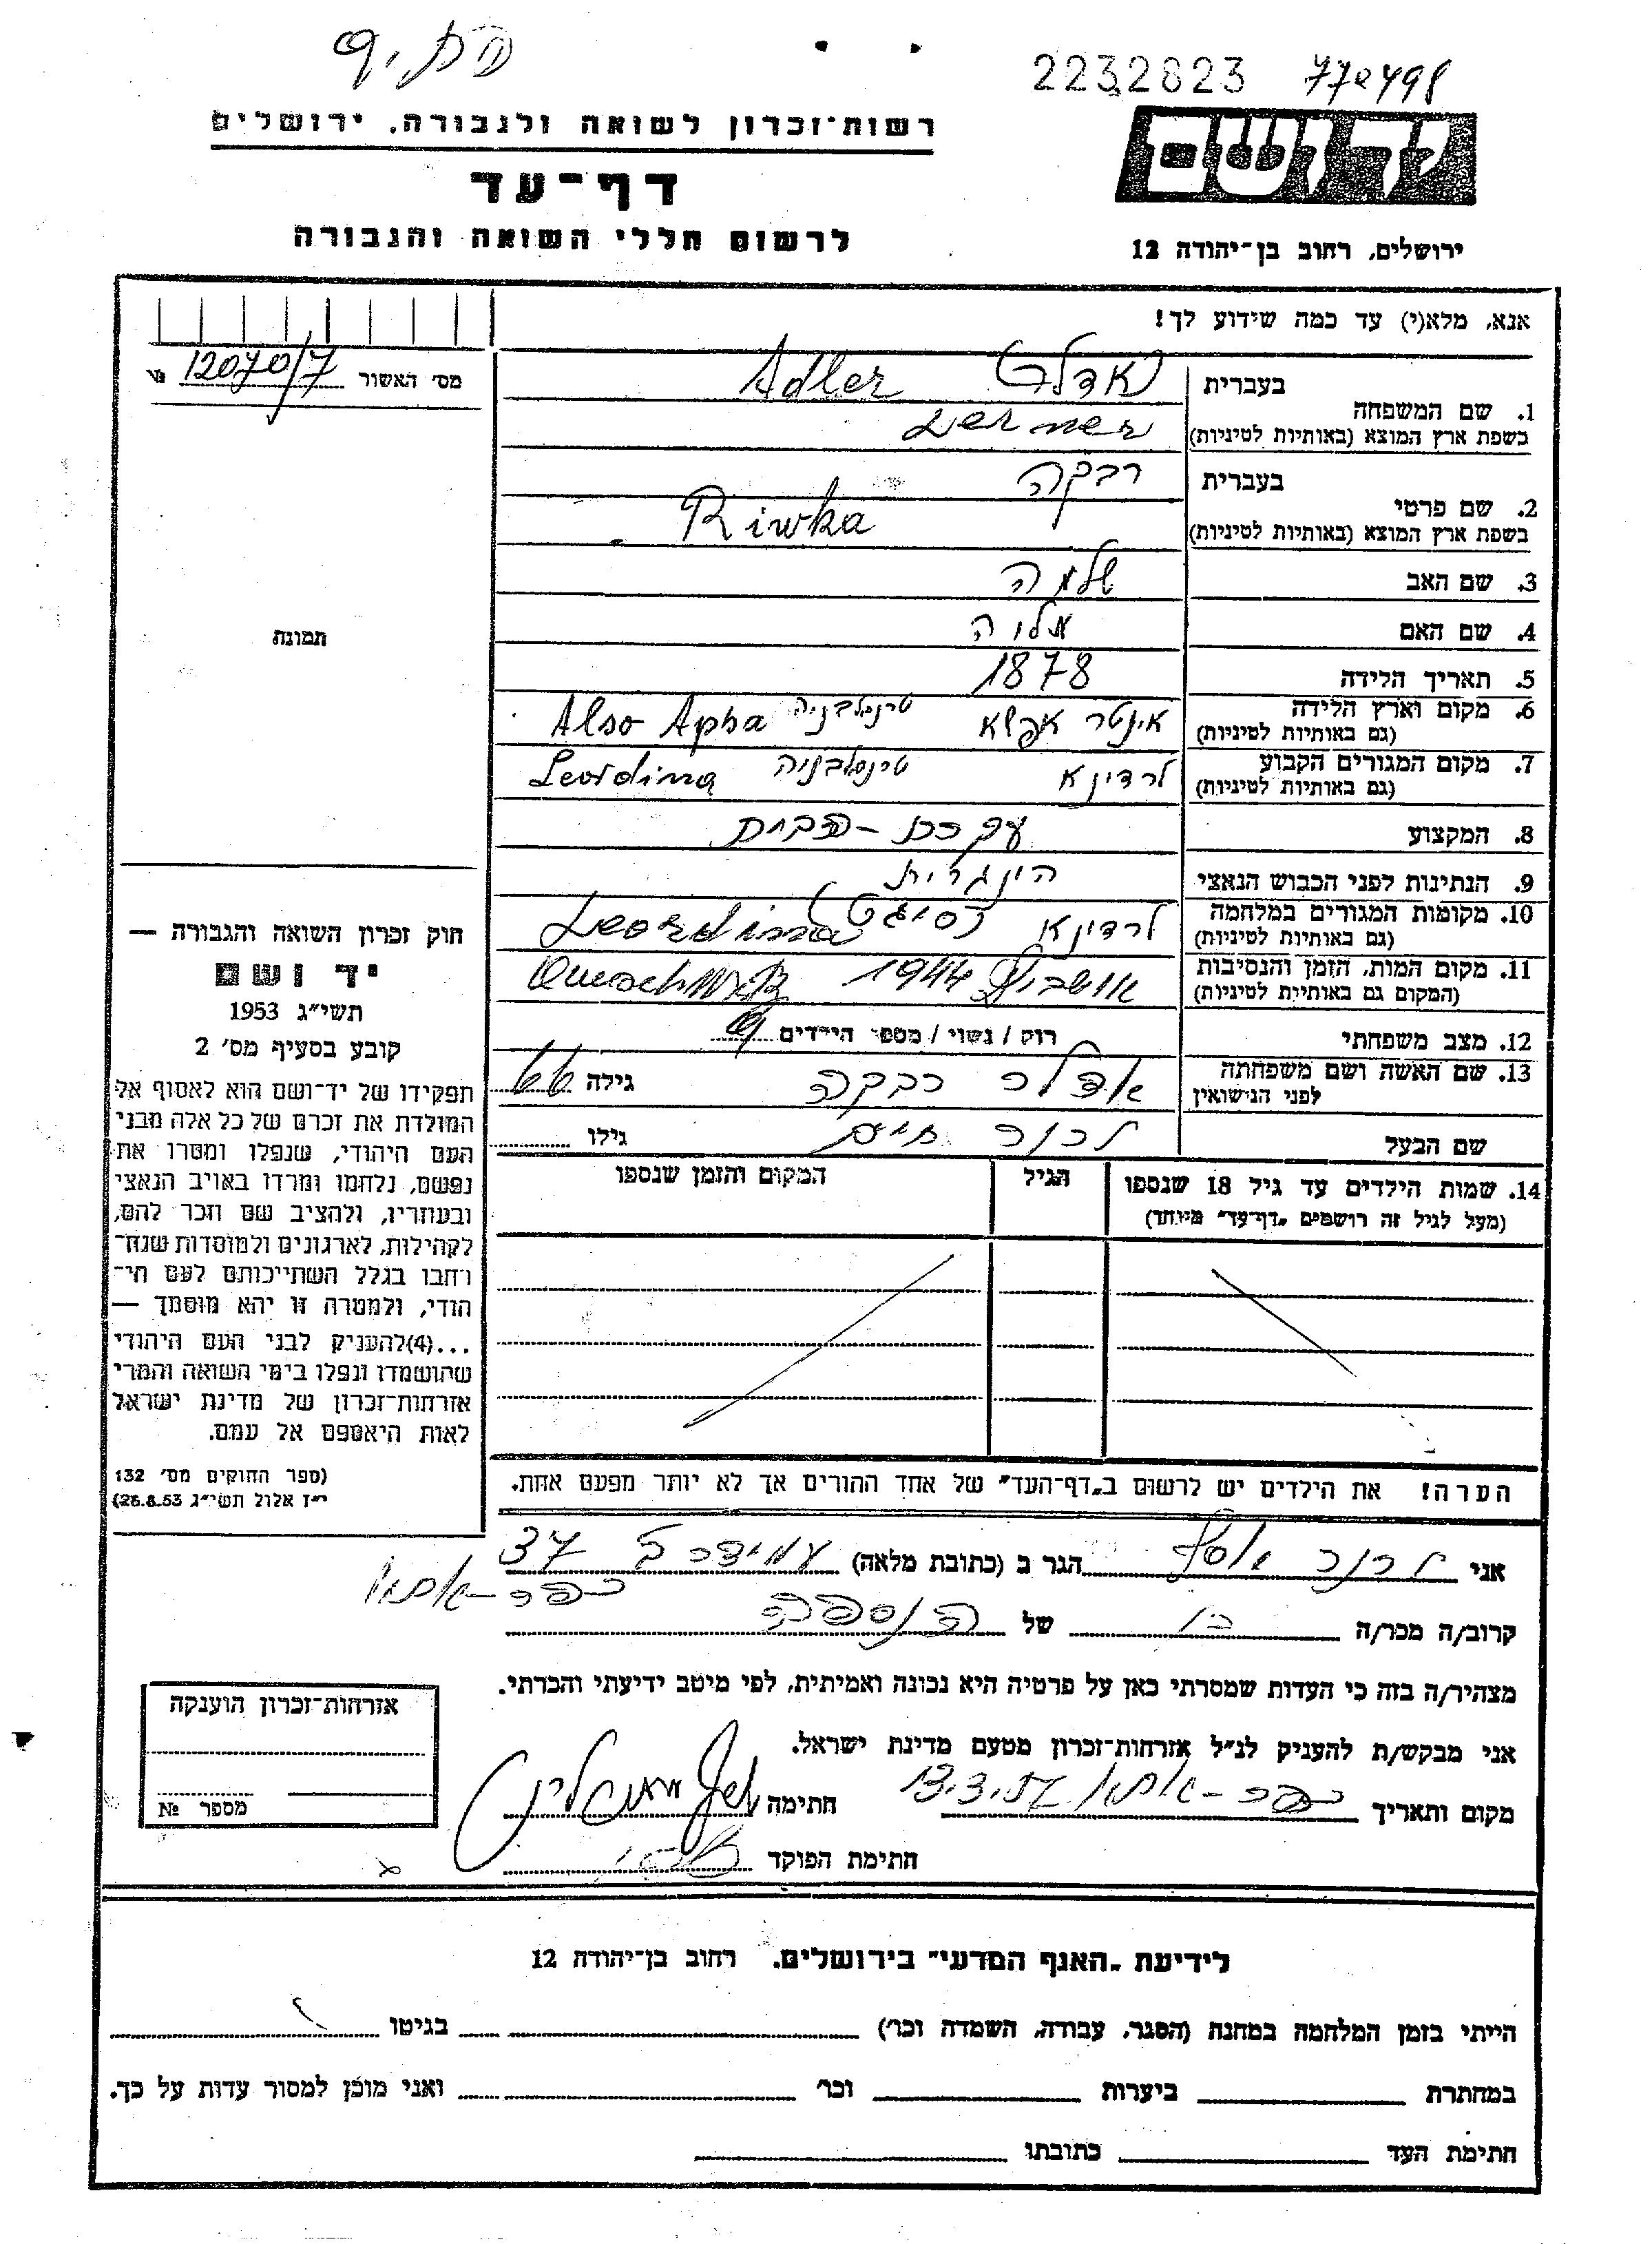 2232823
רשות־זכרון לשואה ולגבורה, ירושלים
דף־עד
לרשום חללי השואה והגבורה
יד ושם
ירושלים, רחוב בן־יהודה 12
אנא, מלא(י) עד כמה שידוע לך!
מס׳ האשור 12070/7 №
1. שם המשפחה
בעברית אדלר Adler
בשפת ארץ המוצא (באותיות לטיניות) Lerner
2. שם פרטי
בעברית רבקה
בשפת ארץ המוצא (באותיות לטיניות) Riwka
3. שם האב שלמה
4. שם האם
5. תאריך הלידה 1878
6. מקום וארץ הלידה אינטר אפשא טרנסלבניה Also Apsha
(גם באותיות לטיניות)
7. מקום המגורים הקבוע לרדינא טרנסלבניה Leordina
(גם באותיות לטיניות)
8. המקצוע עקרת-הבית
9. הנתינות לפני הכבוש הנאצי הונגרית
10. מקומות המגורים במלחמה לרדינא Leordina
(גם באותיות לטיניות)
11. מקום המות, הזמן והנסיבות אושביץ 1944
(המקום גם באותיות לטיניות)
12. מצב משפחתי רוק / נשוי / מספר הילדים
13. שם האשה ושם משפחתה אדלר רבקה גילה 66
לפני הנישואין
שם הבעל לרנר חיים גילו
14. שמות הילדים עד גיל 18 שנספו הגיל המקום והזמן שנספו
(מעל לגיל זה רושמים „דף־עד״ מיוחד)
הערה! את הילדים יש לרשום ב„דף־העד״ של אחד ההורים אך לא יותר מפעם אחת.
תמונה
חוק זכרון השואה והגבורה —
יד ושם
תשי״ג 1953
קובע בסעיף מס׳ 2
תפקידו של יד־ושם הוא לאסוף אל
המולדת את זכרם של כל אלה מבני
העם היהודי, שנפלו ומסרו את
נפשם, נלחמו ומרדו באויב הנאצי
ובעוזריו, ולהציב שם וזכר להם,
לקהילות, לארגונים ולמוסדות שנח־
רחבו בגלל השתייכותם לעם הי־
הודי, ולמטרה זו יהא מוסמך —
...(4)להעניק לבני העם היהודי
שהושמדו ונפלו בימי השואה והמרי
אזרחות־זכרון של מדינת ישראל
לאות היאספם אל עמם.
(ספר החוקים מס׳ 132
י״ז אלול תשי״ג 26.8.53)
אני לרנר יוסף הגר ב (כתובת מלאה) עמידר ב 37
כפר-אתא
קרוב/ה מכר/ה בן של הנספה
מצהיר/ה בזה כי העדות שמסרתי כאן על פרטיה היא נכונה ואמיתית, לפי מיטב ידיעתי והכרתי.
אני מבקש/ת להעניק לנ״ל אזרחות־זכרון מטעם מדינת ישראל.
מקום ותאריך כפר-אתא 13.3.57 חתימה
חתימת הפוקד
אזרחות־זכרון הוענקה
מספר №
לידיעת „האגף המדעי״ בירושלים. רחוב בן־יהודה 12
הייתי בזמן המלחמה במחנה (הסגר, עבודה, השמדה וכר׳) בגיטו
במחתרת ביערות וכר׳ ואני מוכן למסור עדות על כך.
חתימת העד כתובתו